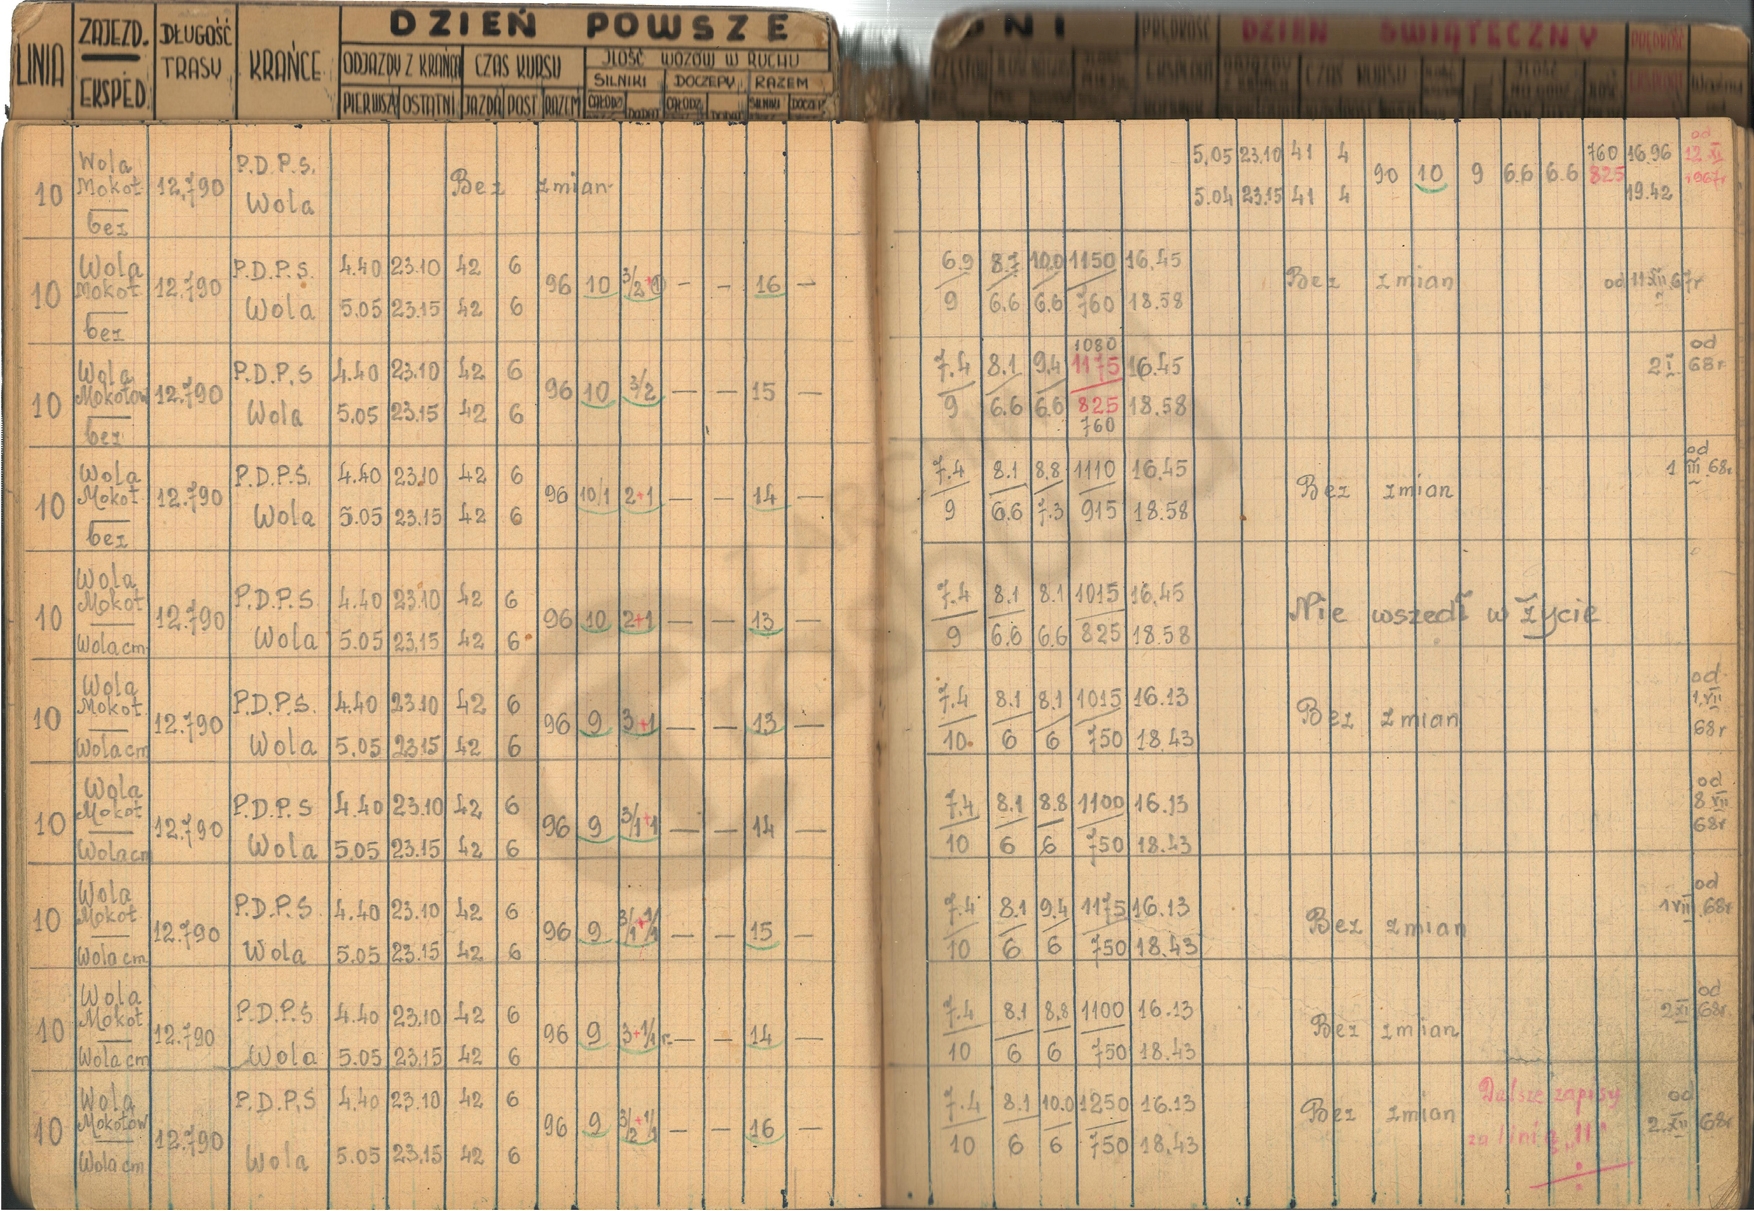 LINIA ZAJEZD. EKSPED. DŁUGOŚĆ TRASY KRAŃCE DZIEŃ POWSZE DNI PRĘDKOŚĆ DZIEŃ ŚWIĄTECZNY PRĘDKOŚĆ
ODJAZDY Z KRAŃCA CZAS KURSU JLOŚĆ WOZÓW W RUCHU
SILNIKI DOCZEPY RAZEM
PIERWSZY OSTATNI JAZDA POST RAZEM
10 Wola Mokot. bez 12.790 P.D.P.S. Wola Bez zmian
5.05 23.10 41 4
90 10 9 6.6 6.6 760 825 16.96 od 12 XI 1967r
5.04 23.15 41 4 19.42
10 Wola Mokot bez 12.790
P.D.P.S. 4.40 23.10 42 6 96 10 3/2+1 — — 16 — 6.9 8.7 10.0 1150 16.45 Bez zmian od 11 XII 67r
Wola 5.05 23.15 42 6 9 6.6 6.6 760 18.58
10 Wola Mokotów bez 12.790
1080
P.D.P.S 4.40 23.10 42 6 96 10 3/2 — — 15 — 7.4 8.1 9.4 1175 16.45 od 2 I 68r
Wola 5.05 23.15 42 6 9 6.6 6.6 825 18.58
760
10 Wola Mokot. bez 12.790
P.D.P.S. 4.40 23.10 42 6 96 10/1 2+1 — — 14 — 7.4 8.1 8.8 1110 16.45 Bez zmian od 1 III 68r
Wola 5.05 23.15 42 6 9 6.6 7.3 915 18.58
10 Wola Mokot Wola cm 12.790
P.D.P.S 4.40 23.10 42 6 96 10 2+1 — — 13 — 7.4 8.1 8.1 1015 16.45 Nie wszedł w życie
Wola 5.05 23.15 42 6 9 6.6 6.6 825 18.58
10 Wola Mokot. Wola cm 12.790
P.D.P.S. 4.40 23.10 42 6 96 9 3+1 — — 13 — 7.4 8.1 8.1 1015 16.13 Bez zmian od 1.VII 68r
Wola 5.05 23.15 42 6 10 6 6 750 18.43
10 Wola Mokot Wola cm 12.790
P.D.P.S 4.40 23.10 42 6 96 9 3/1+1 — — 14 — 7.4 8.1 8.8 1100 16.13 od 8 VII 68r
Wola 5.05 23.15 42 6 10 6 6 750 18.43
10 Wola Mokot Wola cm 12.790
P.D.P.S 4.40 23.10 42 6 96 9 3/1+1/1 — — 15 — 7.4 8.1 9.4 1175 16.13 Bez zmian od 1 VII 68r
Wola 5.05 23.15 42 6 10 6 6 750 18.43
10 Wola Mokot Wola cm 12.790
P.D.P.S 4.40 23.10 42 6 96 9 3+1/1 — — 14 — 7.4 8.1 8.8 1100 16.13 Bez zmian od 2 XI 68r
Wola 5.05 23.15 42 6 10 6 6 750 18.43
10 Wola Mokotów Wola cm 12.790
P.D.P.S 4.40 23.10 42 6 96 9 3/2+1/1 — — 16 — 7.4 8.1 10.0 1250 16.13 Bez zmian od 2.XII 68r
Wola 5.05 23.15 42 6 10 6 6 750 18.43
Dalsze zapisy
za linią „11"